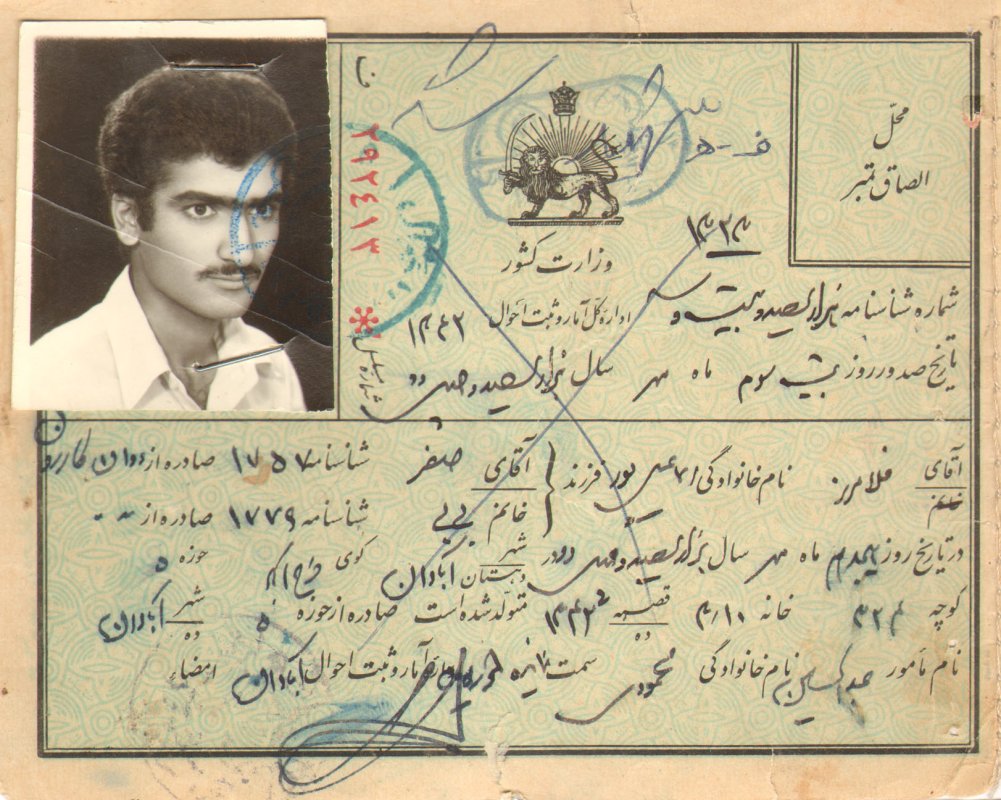 محلّ
الصاق تمبر
ف-ه
۲۹۲۴۱۳
۱۳۲۳
وزارت کشور
شماره شناسنامه هزار و سیصد و بیست و سه
اداره کل آمار و ثبت احوال ۱۳۴۲
تاریخ صدور روز بیست و سوم ماه مهر سال هزار و سیصد و چهل و دو
آقای خانم فلامرز نام خانوادگی فرزند آقای صفر شناسنامه ۱۷۵۷ صادره از دوان کازرون
خانم بی بی شناسنامه ۱۷۷۹ صادره از
در تاریخ روز ماه مهر سال هزار و سیصد و چهل و دو در شهر دهستان آبادان کوی حوزه ۵
کوچه خانه قصبه ده ۱۳۴۲ متولد شده است صادره از حوزه ۵ شهر ده آبادان
نام مأمور نام خانوادگی محمودی سمت اداره آمار و ثبت احوال آبادان امضاء